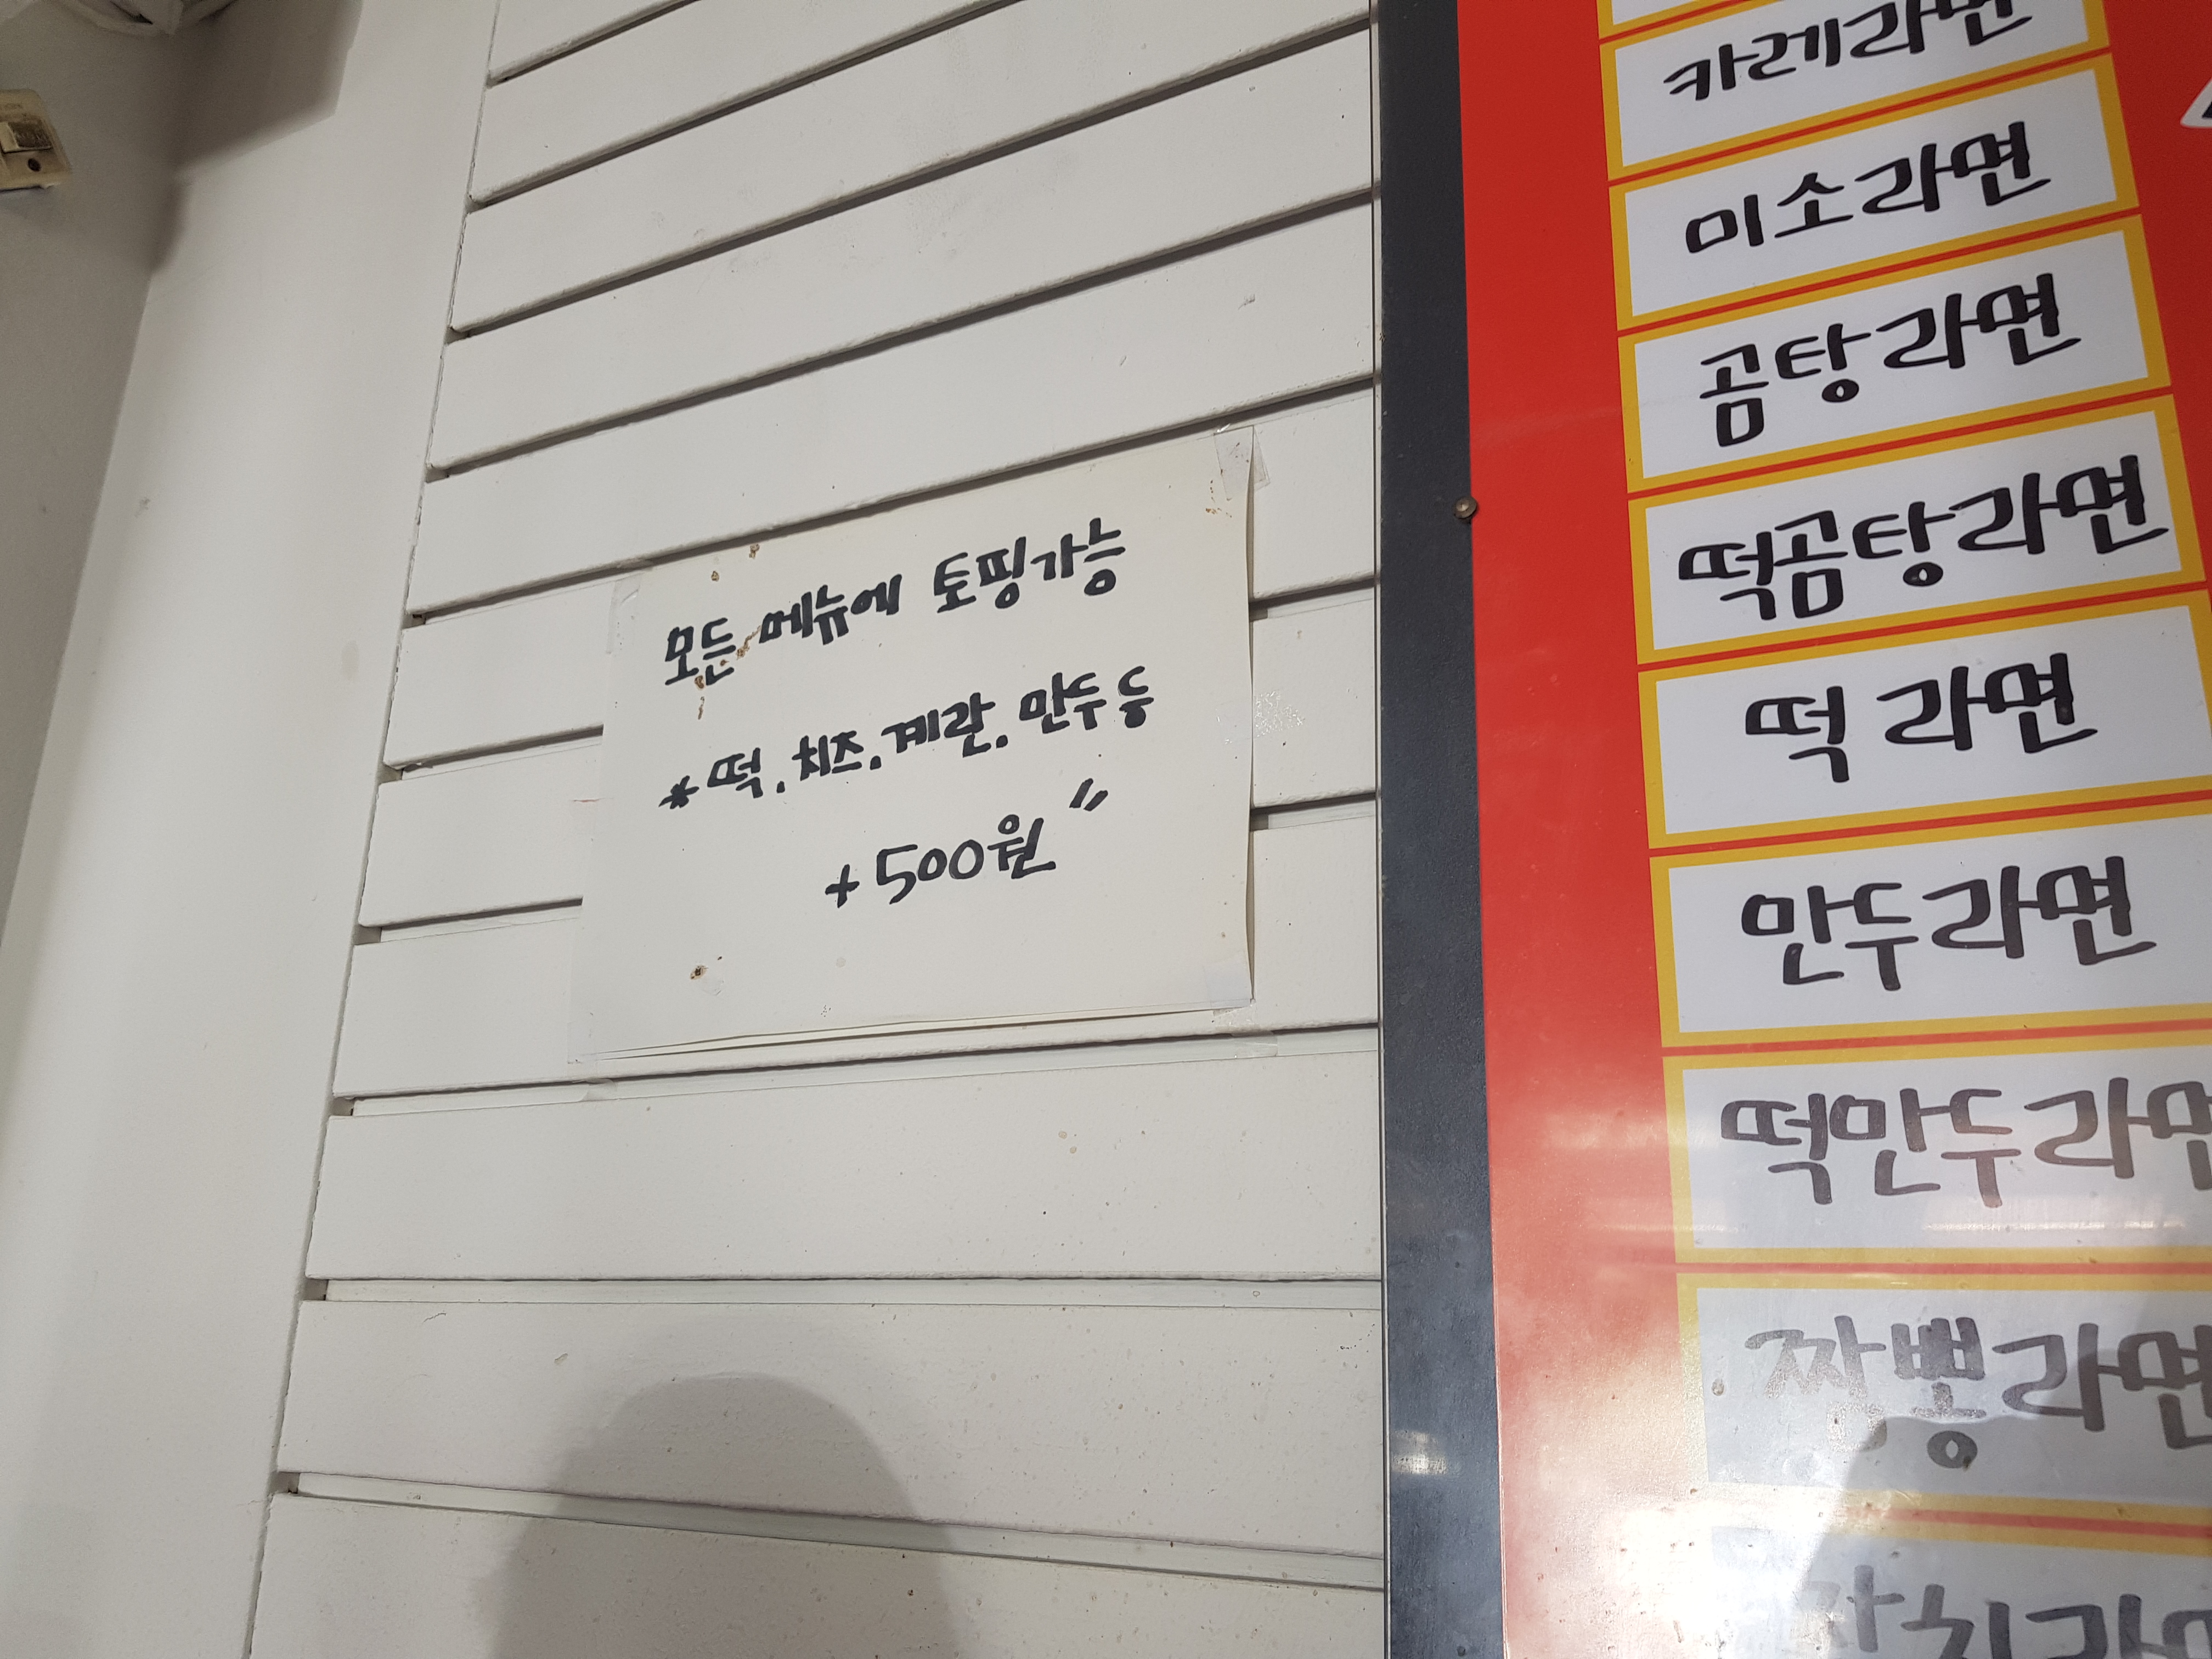 모든 메뉴에 토핑가능
* 떡. 치즈. 계란. 만두 등
+ 500원 〃
카레라면
미소라면
곰탕라면
떡곰탕라면
떡 라면
만두라면
떡만두라면
짬뽕라면